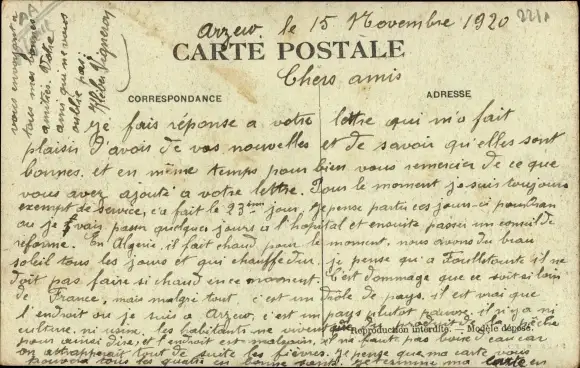 Arzew, le 15 Novembre 1920
CARTE POSTALE
Chers amis
CORRESPONDANCE
ADRESSE
Je fais réponse a votre lettre qui m'a fait
plaisir d'avoir de vos nouvelles et de savoir qu'elles sont
bonnes, et en même temps pour bien vous remercier de ce que
vous avez ajouté a votre lettre. Pour le moment je suis toujours
exempt de service, ça fait le 23ème jour, je pense partir ces jours-ci pour Oran
ou je vais passer quelques jours a l'hopital et ensuite passer un conseil de
réforme. En Algérie, il fait chaud pour le moment, nous avons du beau
soleil tous les jours et qui chauffe dur, je pense qu'a il ne
doit pas faire si chaud en ce moment. C'est dommage que ce soit si loin
de France, mais malgré tout, c'est un drôle de pays, il est vrai que
l'endroit ou je suis a Arzew, c'est un pays plutot pauvre, il n'y a ni
culture, ni usine, les habitants ne vivent que de la pêche
Reproduction interdite. — Modèle déposé.
pour ainsi dire, et l'endroit est malsain, il ne faut pas boire d'eau car
on attraperait tout de suite les fièvres. Je pense que ma carte vous
trouvera tous en bonne santé. Je termine ma carte en
vous envoyant a
tous mes bonnes
amitiés. Votre
ami qui ne vous
oublie pas.
Kléber Vigneron